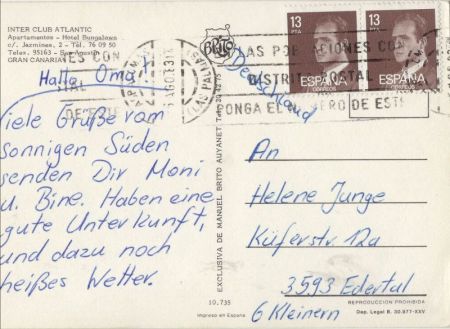 INTER CLUB ATLANTIC
Apartamentos - Hotel Bungalows
c/. Jazmines, 2 - Tél. 76 09 50
Télex. 95161 - San Agustín
GRAN CANARIA
Hallo Oma!
Viele Grüße vom
sonnigen Süden
senden Dir Moni
u. Bine. Haben eine
gute Unterkunft,
und dazu noch
heißes Wetter.
BRITO
EXCLUSIVA DE MANUEL BRITO AUYANET
10.735
Impreso en España
Deutschland
13
PTA
ESPAÑA
CORREOS
13
PTA
ESPAÑA
CORREOS
LAS POBLACIONES CON
DISTRITO POSTAL
PONGA EL NUMERO DE ESTE
LAS PALMAS
An
Helene Junge
Küferstr 12a
3593 Edertal
6 Kleinern
REPRODUCCION PROHIBIDA
Dep. Legal B. 30.977-XXV